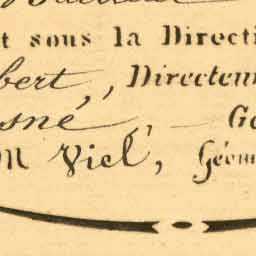 t sous la Directi
bert, Directeu
sné, — Gé
M Viel, Géom